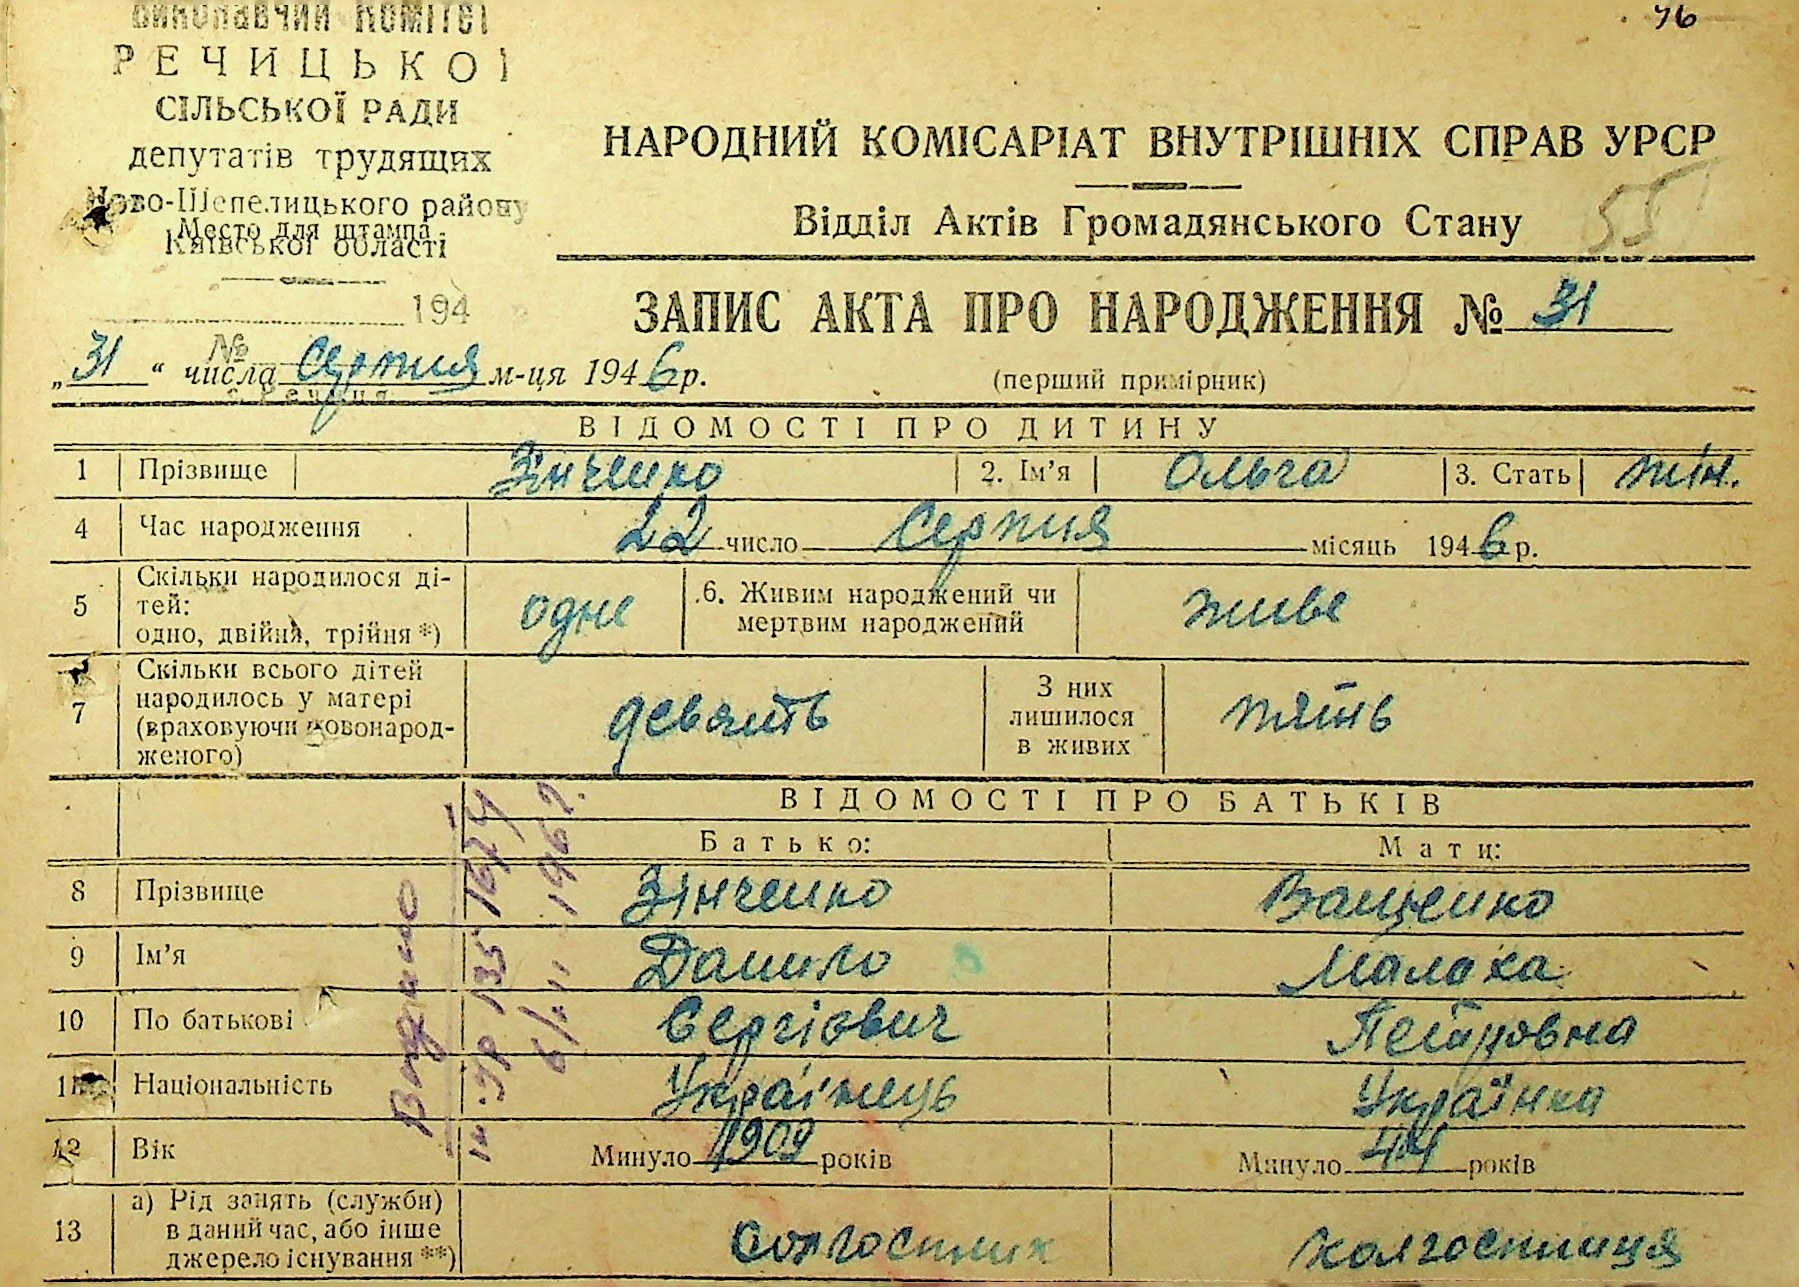 46
ВИКОНАВЧИЙ КОМІТЕТ
РЕЧИЦЬКОЇ
СІЛЬСЬКОЇ РАДИ
депутатів трудящих
Ново-Шепелицького району
Место для штампа
Київської області
194
№
с. Речиця
НАРОДНИЙ КОМІСАРІАТ ВНУТРІШНІХ СПРАВ УРСР
55
Відділ Актів Громадянського Стану
ЗАПИС АКТА ПРО НАРОДЖЕННЯ № 31
„31“ числа Серпня м-ця 1946 р.
(перший примірник)
ВІДОМОСТІ ПРО ДИТИНУ
1 Прізвище Зінченко 2. Ім’я Ольга 3. Стать жін.
4 Час народження 22 число Серпня місяць 1946 р.
5 Скільки народилося ді-
тей:
одно, двійня, трійня *) одне
6. Живим народжений чи
мертвим народжений живе
7 Скільки всього дітей
народилось у матері
(враховуючи новонарод-
женого) девять
З них
лишилося
в живих пять
ВІДОМОСТІ ПРО БАТЬКІВ
Батько: Мати:
8 Прізвище Зінченко Ващенко
9 Ім’я Данило Малаха
10 По батькові Сергієвич Петровна
11 Національність Українець Українка
12 Вік Минуло 1909 років Минуло 44 років
13 а) Рід занять (служби)
в даний час, або інше
джерело існування **) Колгоспник колгоспниця
Видано
135
1962